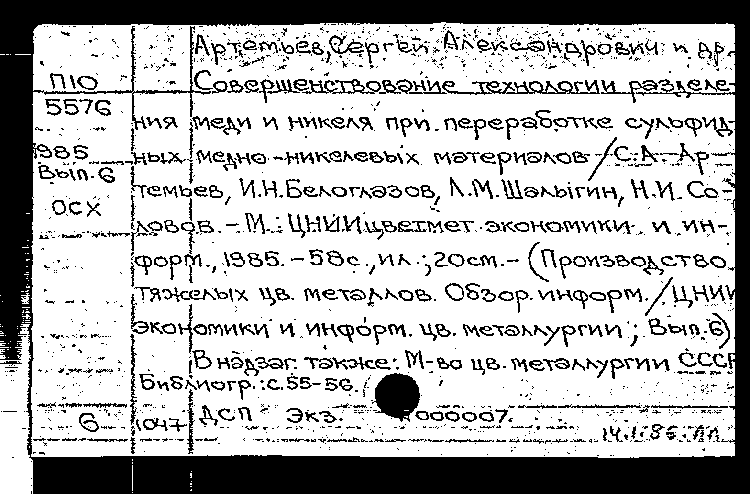 Артемьев, Сергей Александрович и др.
П10 Совершенствование технологии разделе-
5576
ния меди и никеля при переработке сульфид-
1985 ных медно-никелевых материалов / С.А. Ар-
Вып. 6
темьев, И.Н. Белоглазов, Л.М. Шалыгин, Н.И. Со-
ОСХ
ловов. - М.: ЦНИИцветмет экономики и ин-
форм., 1985. - 58с., ил.; 20см. - (Производство
тяжелых цв. металлов. Обзор. информ. / ЦНИИ
экономики и информ. цв. металлургии; Вып. 6)
В надзаг. также: М-во цв. металлургии СССР
Библиогр.: с. 55-56.
6 1047 ДСП Экз. 000007.